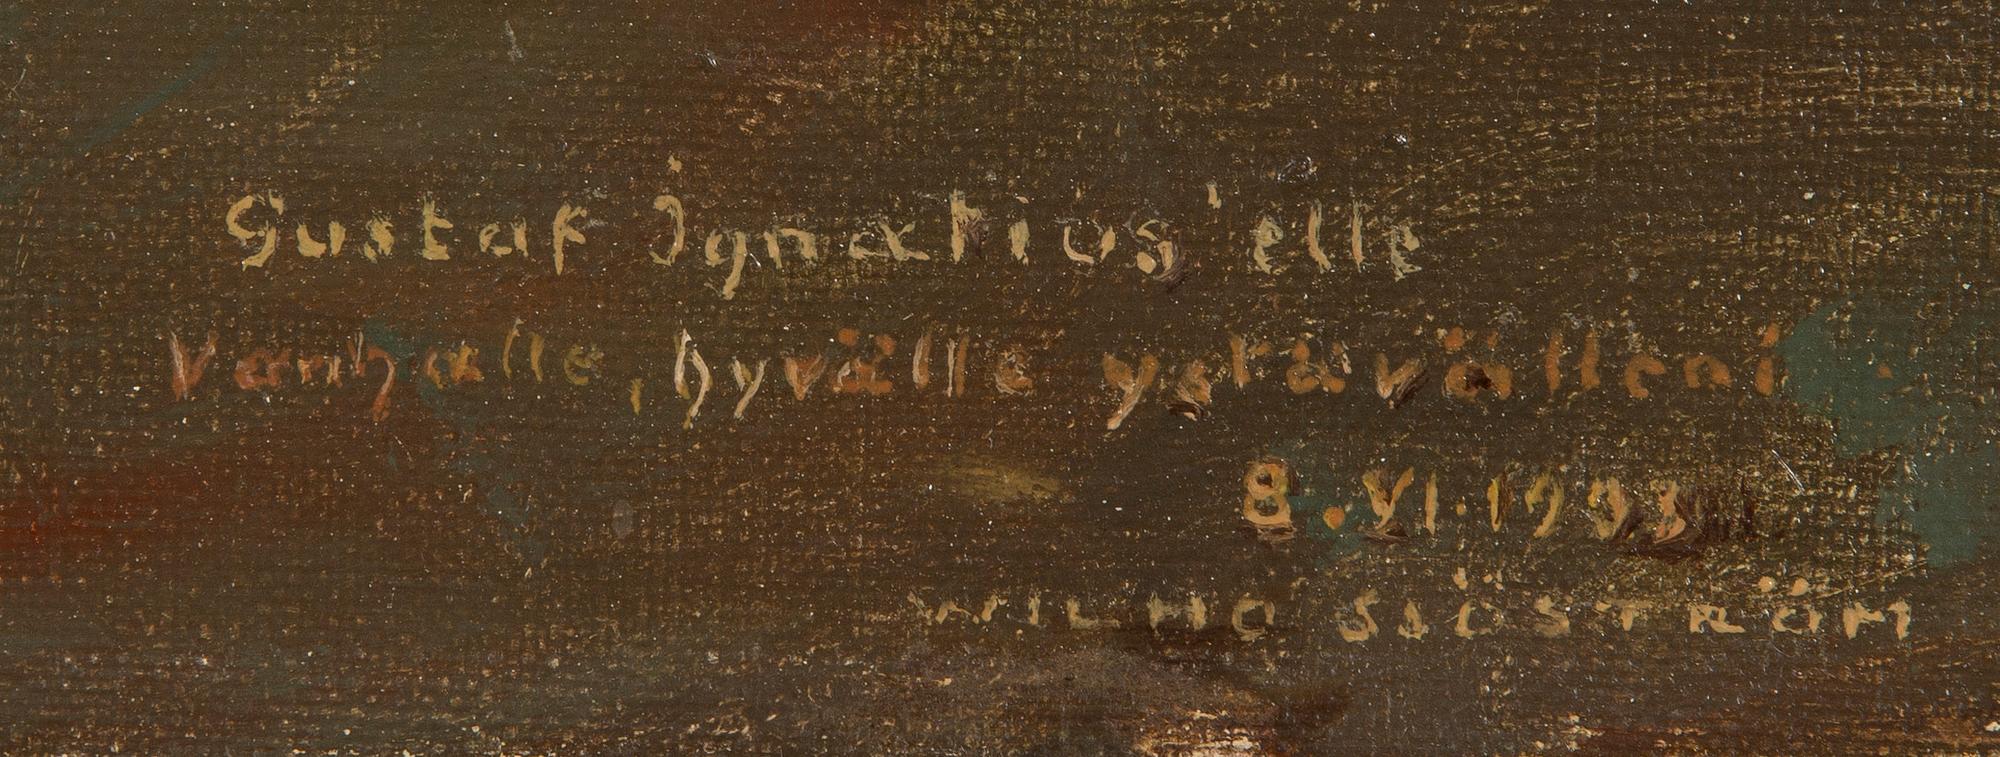 Gustaf Ignatius'elle
Vanhalle, hyvälle ystävälleni
8.VI.
WILHO SJÖSTRÖM